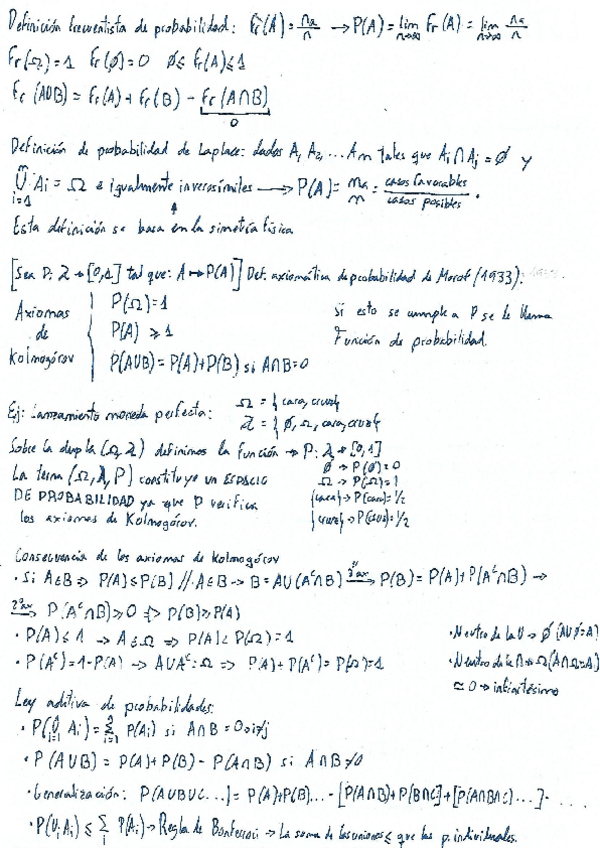 Definición frecuentista de probabilidad: Fr(A) = nₐ/n → P(A) = lim n→∞ Fr(A) = lim n→∞ nₐ/n
Fr(Ω)=1 Fr(∅)=0 0≤Fr(A)≤1
Fr(A∪B) = Fr(A) + Fr(B) - Fr(A∩B)
0
Definición de probabilidad de Laplace: dados A₁ A₂, ... Am tales que Ai∩Aj = ∅ y
⋃ᵐᵢ₌₁ Ai = Ω e igualmente inverosímiles → P(A) = mₐ/m = casos favorables/casos posibles.
Esta definición se basa en la simetría física
[Sea P: 𝒜 → [0,1] tal que: A → P(A)] Def. axiomática de probabilidad de (1933).
Axiomas de Kolmogórov { P(Ω)=1
P(A) ≥ 1
P(A∪B) = P(A)+P(B) si A∩B=0
si esto se cumple a P se le llama
Función de probabilidad.
Ej: Lanzamiento moneda perfecta: Ω = {cara, cruz}
𝒜 = {∅, Ω, cara, cruz}
Sobre la dupla (Ω,𝒜) definimos la función → P: 𝒜 → [0,1]
∅ → P(∅)=0
La terna (Ω,A,P) constituye un ESPACIO
Ω → P(Ω)=1
DE PROBABILIDAD ya que P verifica
{cara} → P(cara)=1/2
los axiomas de Kolmogórov.
{cruz} → P(cruz)=1/2
Consecuencia de los axiomas de Kolmogórov
· Si A⊆B ⇒ P(A)≤P(B) // A⊆B → B = A∪(Aᶜ∩B) 3ᵉʳax⟹ P(B) = P(A)+P(Aᶜ∩B) →
2ºax⟹ P(Aᶜ∩B)≥0 ⇒ P(B)≥P(A)
· P(A)≤1 → A⊆Ω ⇒ P(A)≤P(Ω)=1
· P(Aᶜ)=1-P(A) → A∪Aᶜ=Ω ⇒ P(A)+P(Aᶜ)=P(Ω)=1
· Neutro de la ∪ → ∅ (A∪∅=A)
· Neutro de la ∩ → Ω (A∩Ω=A)
≃ 0 → infinitésimo
Ley aditiva de probabilidades:
· P(⋃ᵢ₌₁ Ai) = Σᵢ₌₁ P(Ai) si A∩B = 0, i≠j
· P(A∪B) = P(A)+P(B) - P(A∩B) si A∩B≠0
· Generalización: P(A∪B∪C...) = P(A)+P(B)... - [P(A∩B)+P(B∩C]+[P(A∩B∩C)...]- ....
· P(∪ᵢAᵢ) ≤ Σᵢ P(Ai) → Regla de Bonferroni → La suma de las uniones ≤ que las p. individuales.